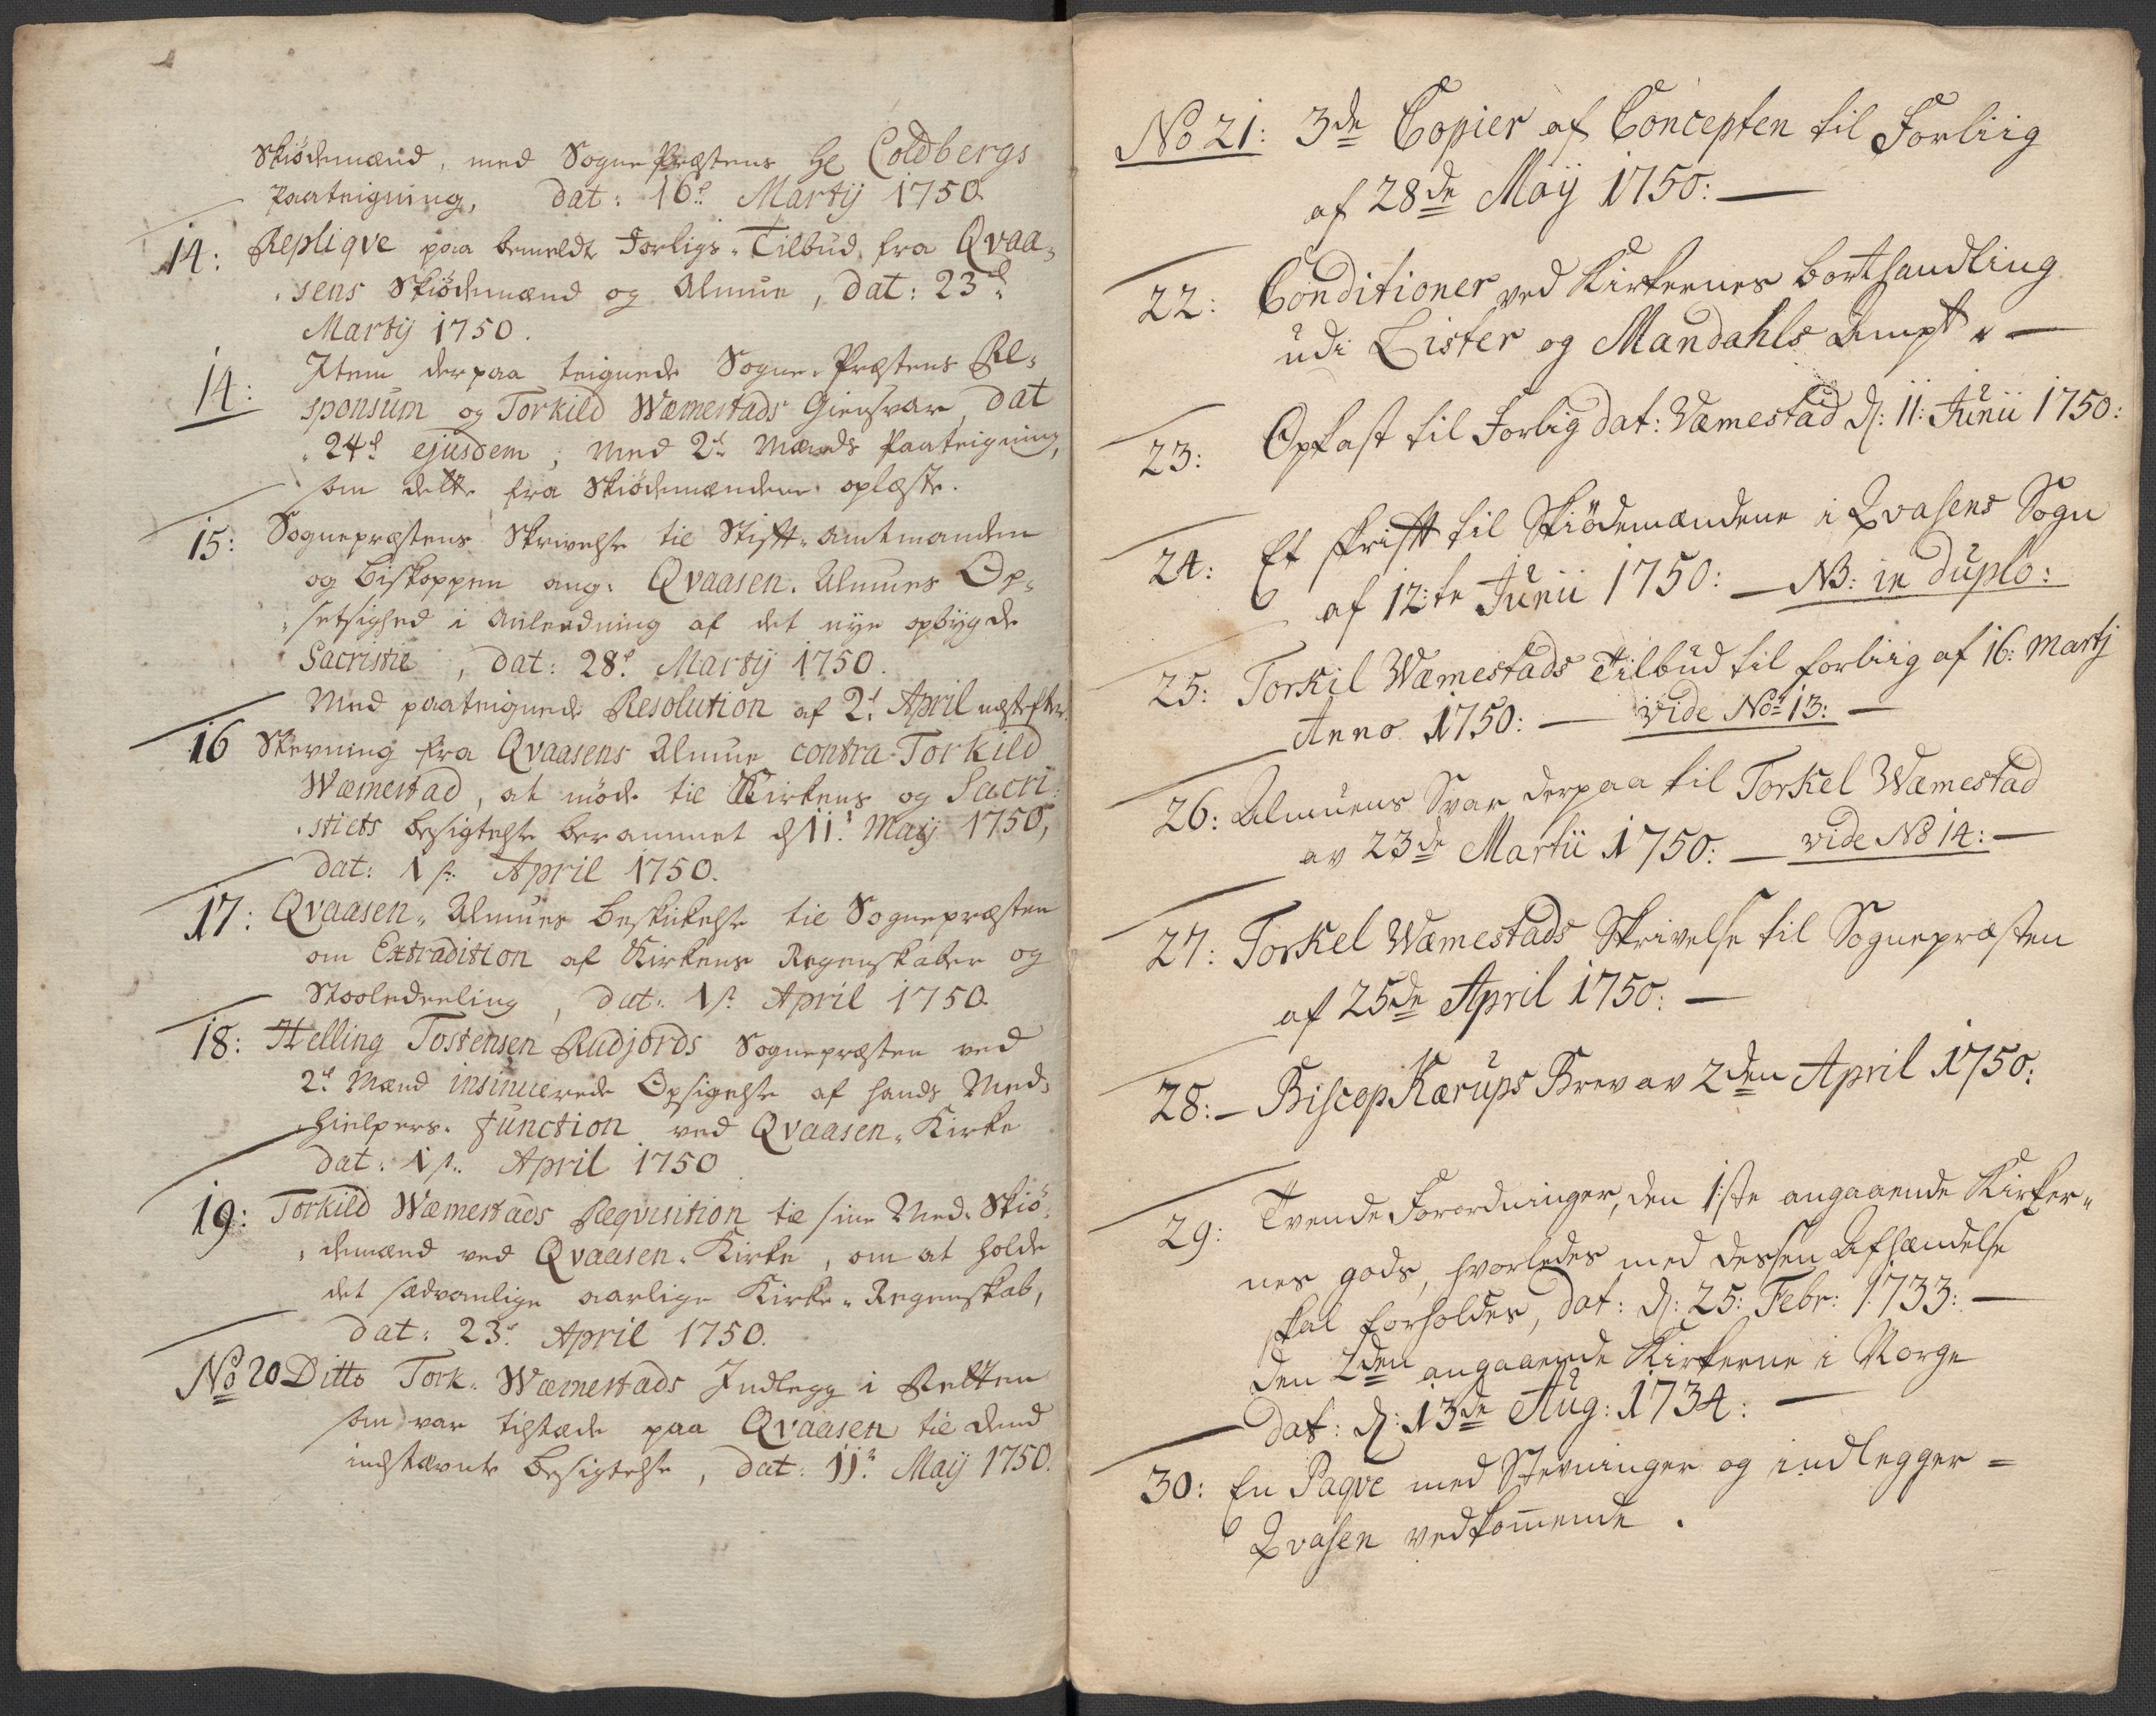 Skiødemænd, med SognePræstens Hr Coldbergs
Paategning, dat: 16d Martij 1750
14: Replique paa bemeldte Forligs-Tilbud, fra Qvaa-
sens Skiødemænd og Almue, dat: 23d
Martij 1750.
14: Item derpaa teignede Sogne-Præstens Re-
sponsum og Torkild Wæmestads Giensvar, dat
24d ejusdem, med 2de Mænds Paateigning,
som dette fra Skiødemændene oplæste.
15: Sognepræstens Skrivelse til Stift-amtmanden
og biskoppen ang: Qvaasen-Almues Op-
setsighed i Anledning af det nye opbygde
Sacristie, dat: 28d Martij 1750.
Med paateignede Resolution af 2d April næstefter.
16 Stevning fra Qvaasens Almue contra Torkild
Wæmestad, at møde til Kirkens og Sacri-
stiets besigtelse berammet d 11t Maij 1750,
dat: 1st April 1750.
17: Qvaasen-Almues beskikelse til Sognepræsten
om Extradition af Kirkens Regenskaber og
Stooledeeling, dat: 1st April 1750
18: Helling Tostensen Rudjords Sognepræsten ved
2de Mænd insinuerede Opsigelse af hands Med-
hielpers-function ved Qvaasen-Kirke
dat: 1st April 1750
19: Torkild Wæmestads Reqvisition til sine Med-Skiø-
demænd ved Qvaasen-Kirke, om at holde
det sædvanlige aarlige Kirke-Regenskab,
dat: 23d April 1750.
No 20 Ditto Tork. Wæmestads Indlegg i Retten
som var tilstæde paa Qvaasen til dend
indstævnte besigtelse, dat: 11t Maij 1750.
No 21: 3de Copier af Concepten til Forliig
af 28de Maij 1750: —
22: Conditioner ved Kirkernes borthandling
udi Lister og Mandahls Ampt —
23: Opkast til Forlig dat: Væmestad d: 11: Junii 1750:
24: Et skrift til Skiødemændene i Qvasens Sogn
af 12:te Junii 1750: — NB: in duplo:
25: Torkil Wæmestads Tilbud til forliig af 16: Martj
Anno 1750: — vide No 13: —
26: Almuens Svar derpaa til Torkel Wæmestad
av 23de Martii 1750: — vide No 14: —
27: Torkel Wæmestads Skrivelse til Sognepræsten
af 25de April 1750: —
28: — Biscop Kærups Brev av 2den April 1750:
29: Tvende Forordninger, den 1ste angaaende Kirker-
nes gods, hvorledes med dessen Afhændelse
skal forholdes, dat: d: 25: Febr: 1733: —
den 2den angaaende Kirkerne i Norge
dat: d: 13de Aug: 1734: —
30: En Paqve med Stevninger og indlegger =
Qvasen vedkom̅ende.